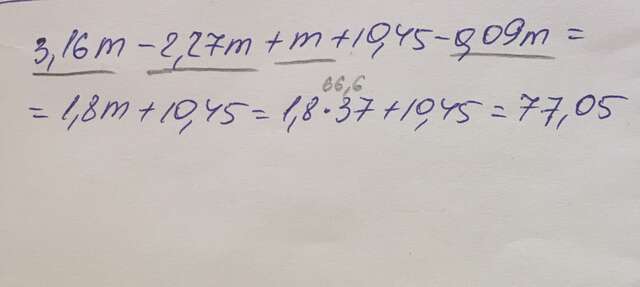 3,16m - 2,27m + m + 10,45 - 0,09m =
66,6
= 1,8m + 10,45 = 1,8 · 37 + 10,45 = 77,05